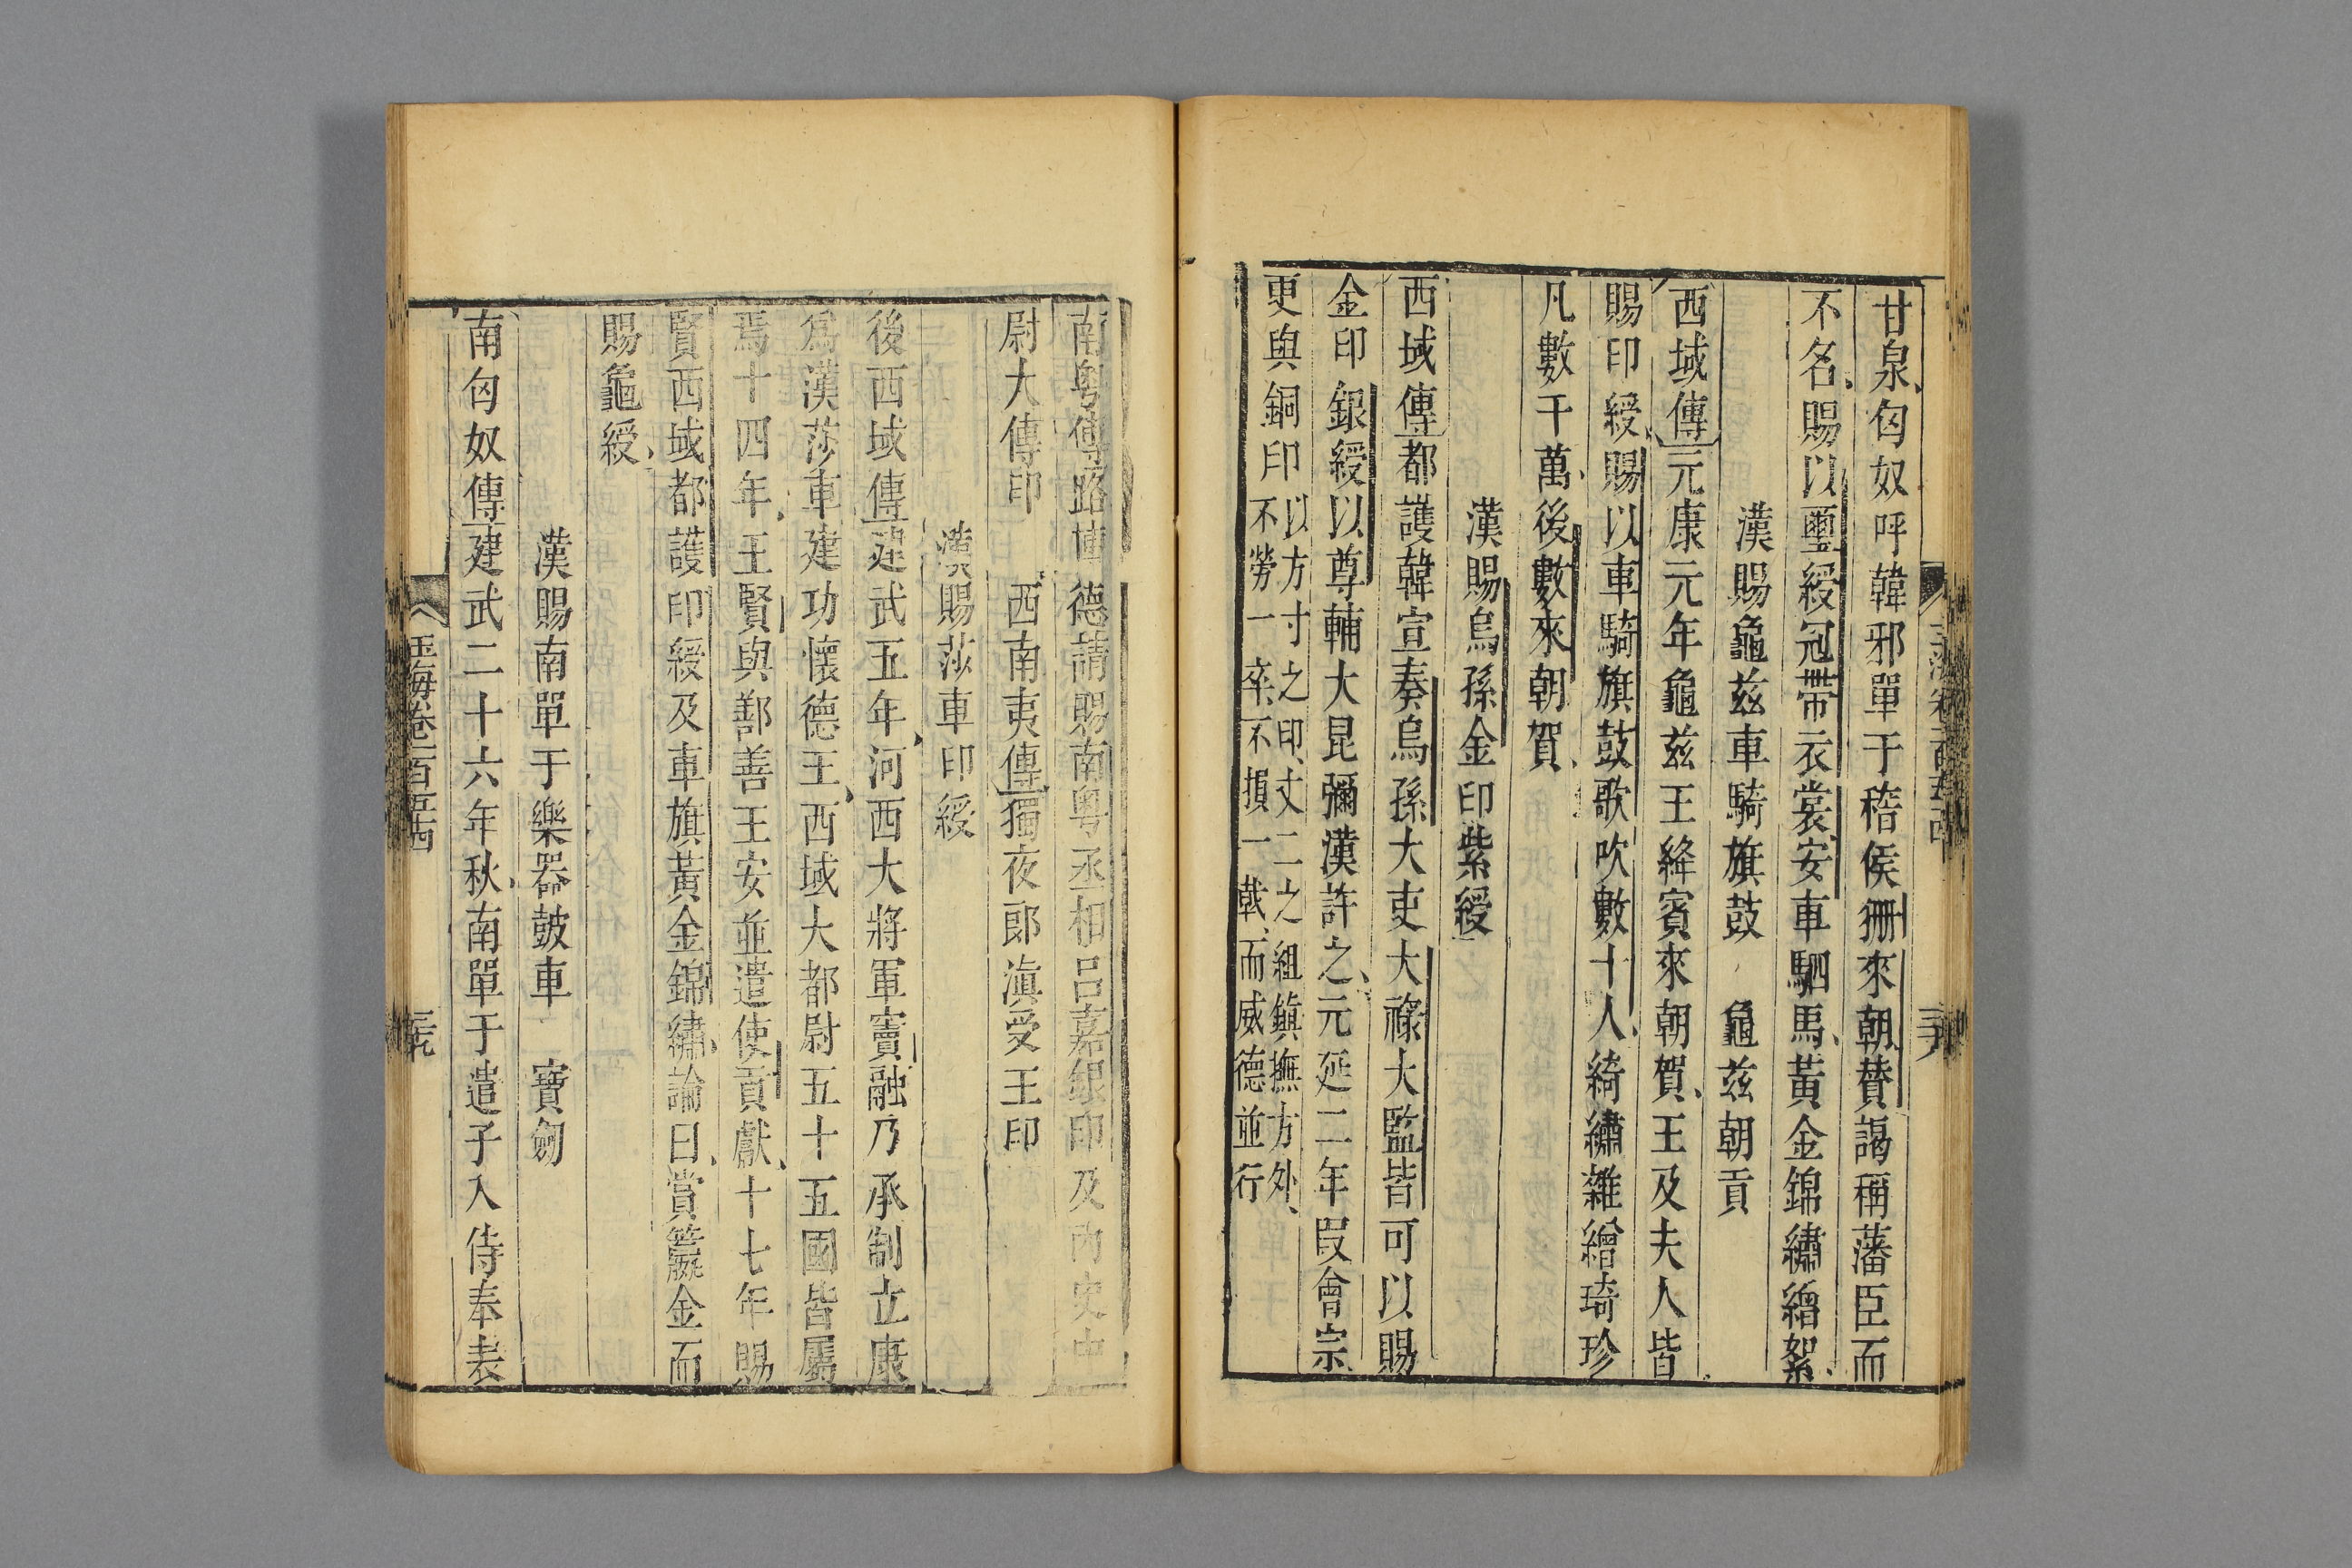 甘泉匈奴呼韓邪單于稽侯狦來朝贊謁稱藩臣而
不名賜以璽綬冠帶衣裳安車駟馬黃金錦繡繒絮
漢賜龜兹車騎旗鼓 龜兹朝貢
西域傳元康元年龜兹王絳賓來朝賀王及夫人皆
賜印綬賜以車騎旗鼓歌吹數十人綺繡雜繒琦珍
凡數千萬後數來朝賀
漢賜烏孫金印紫綬
西域傳都護韓宣奏烏孫大吏大祿大監皆可以賜
金印銀綬以尊輔大昆彌漢許之元延二年叚會宗
更與銅印
以方寸之印丈二之組鎮撫方外
不勞一卒不損一戟而威德並行
南粤傳路博德請賜南粤丞相吕嘉銀印及内史中
尉大傅印 西南夷傳獨夜郎滇受王印
漢賜莎車印綬
後西域傳建武五年河西大將軍竇融乃承制立康
爲漢莎車建功懷德王西域大都尉五十五國皆屬
焉十四年王賢與鄯善王安並遣使貢獻十七年賜
賢西域都護印綬及車旗黃金錦繡論曰賞籝金而
賜龜綬
漢賜南單于樂器皷車 寶劒
南匈奴傳建武二十六年秋南單于遣子入侍奉表
玉海卷一百五十四
三十九